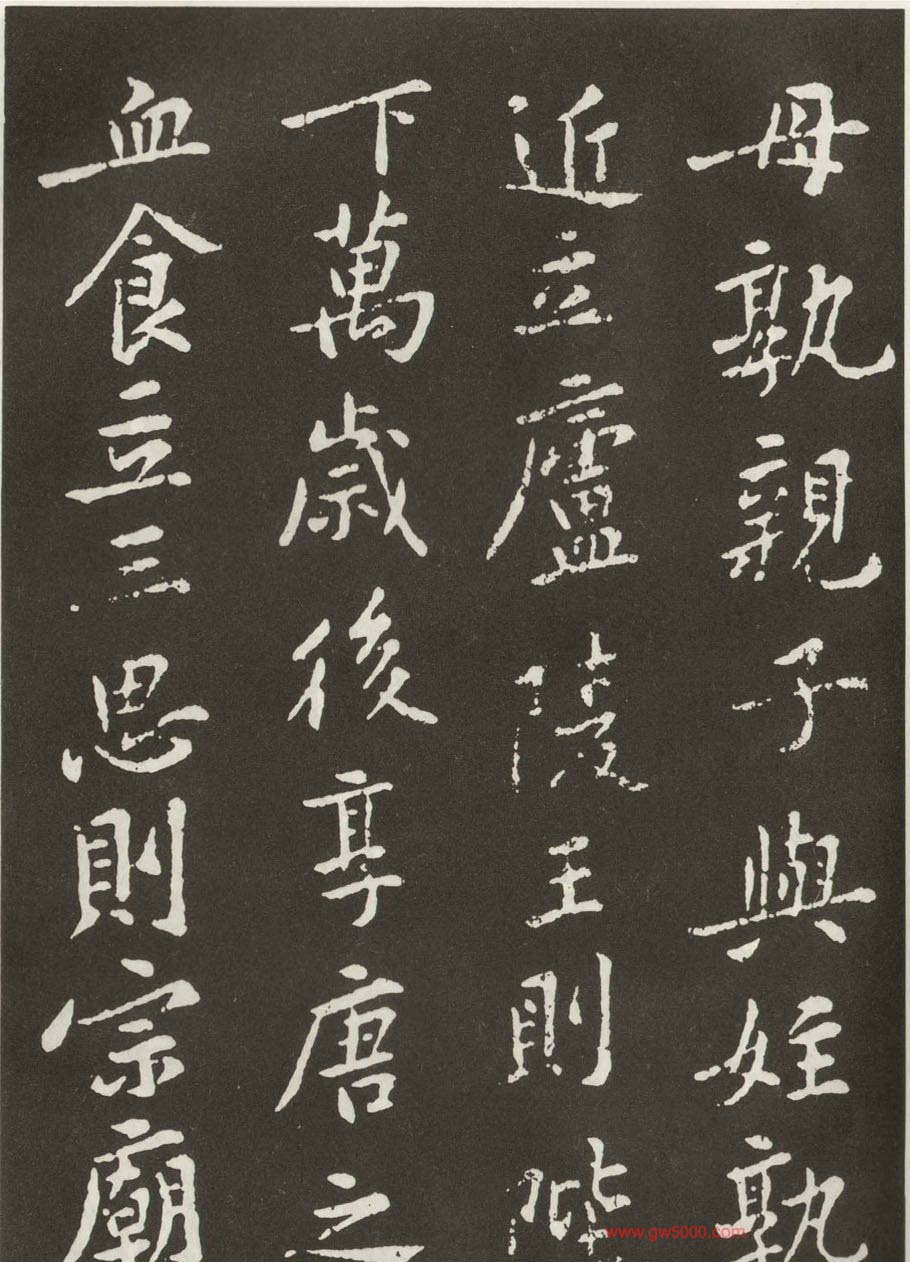 母孰親子與姪孰
近立廬陵王則陛
下萬歲後享唐之
血食立三思則宗廟
www.gw5000.com